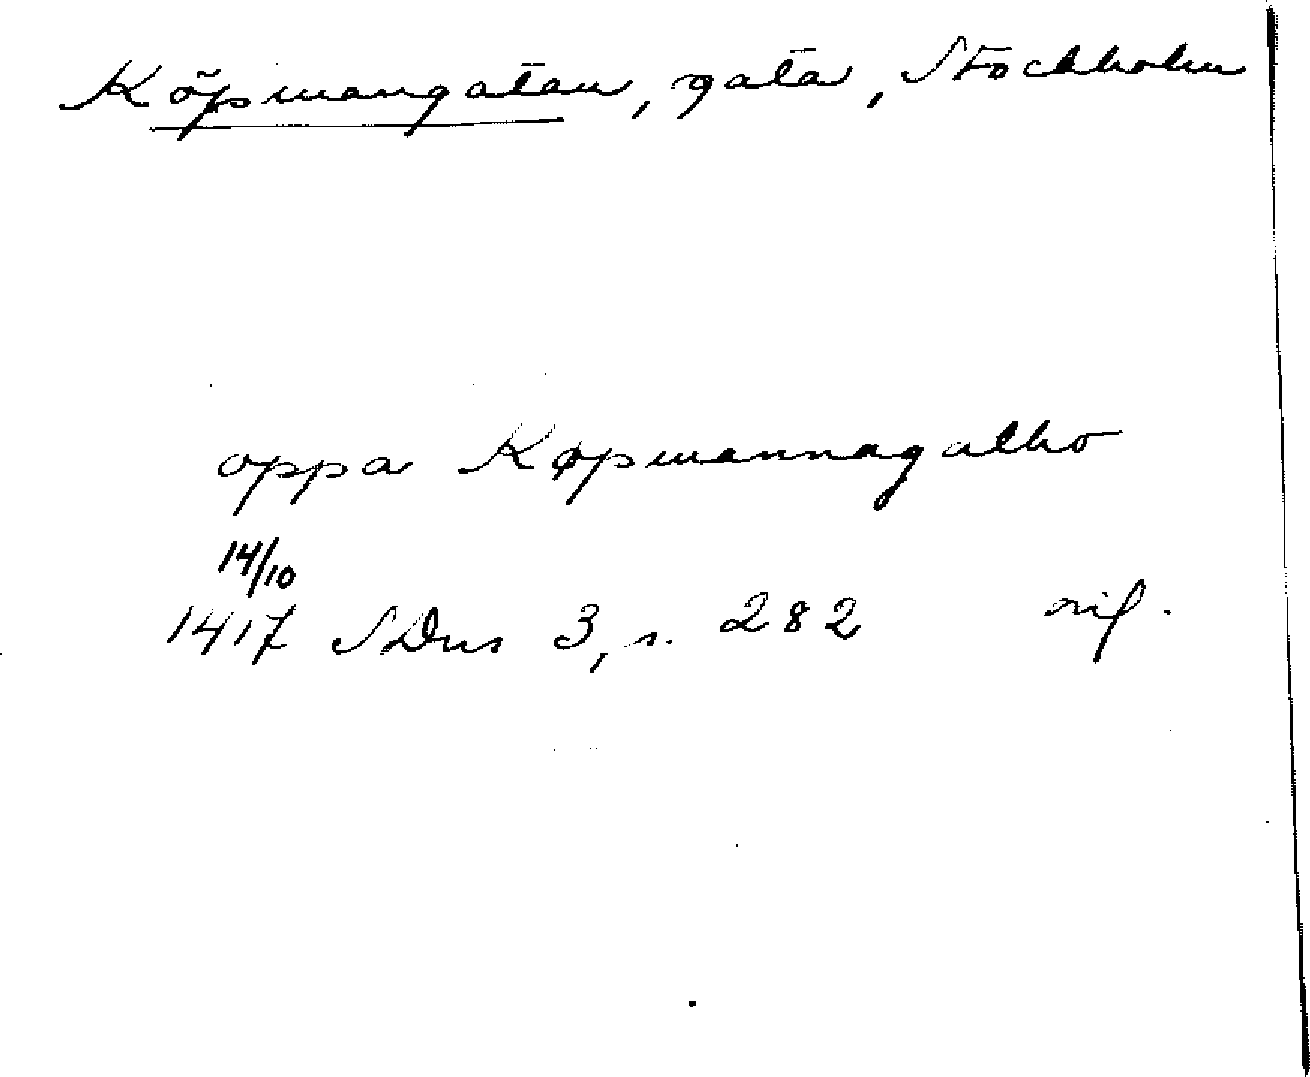 Köpmangatan, gata, Stockholm
oppa Køpmannagatho
14/10
1417 SDns 3, s. 282 orif.